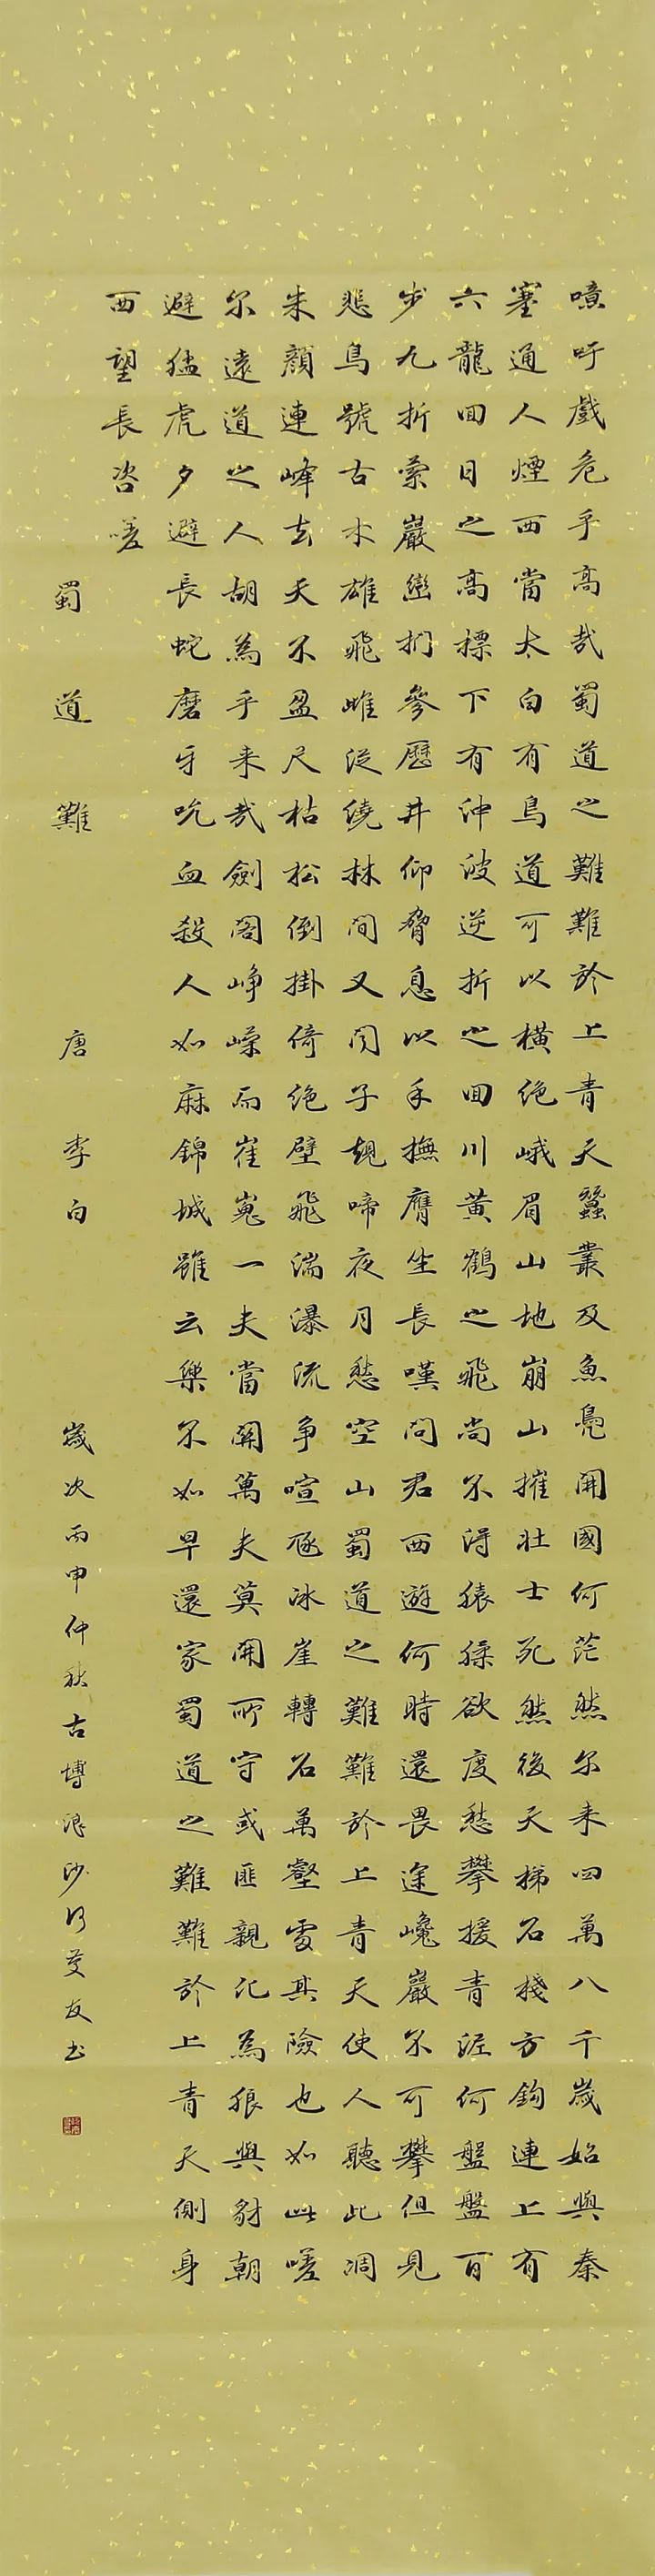 噫吁戲危乎高哉蜀道之難難於上青天蠶叢及魚鳧開國何茫然尔来四萬八千歲始與秦
塞通人煙西當太白有鳥道可以橫绝峨眉山地崩山摧壮士死然後天梯石棧方鉤連上有
六龍回日之高標下有沖波逆折之回川黄鶴之飛尚不得猿猱欲度愁攀援青泥何盤盤百
步九折萦巖巒捫參歷井仰脅息以手撫膺坐長嘆問君西遊何時還畏途巉巖不可攀但見
悲鳥號古木雄飛雌從繞林間又聞子規啼夜月愁空山蜀道之難難於上青天使人聽此凋
朱顏連峰去天不盈尺枯松倒掛倚绝壁飛湍瀑流争喧豗冰崖轉石萬壑雷其險也如此嗟
尔遠道之人胡為乎来哉劍阁崢嶸而崔嵬一夫當關萬夫莫開所守或匪親化為狼與豺朝
避猛虎夕避長蛇磨牙吮血殺人如麻錦城雖云樂不如早還家蜀道之難難於上青天側身
西望長咨嗟
蜀道難 唐 李白 歲次丙申仲秋古博浪沙 友书